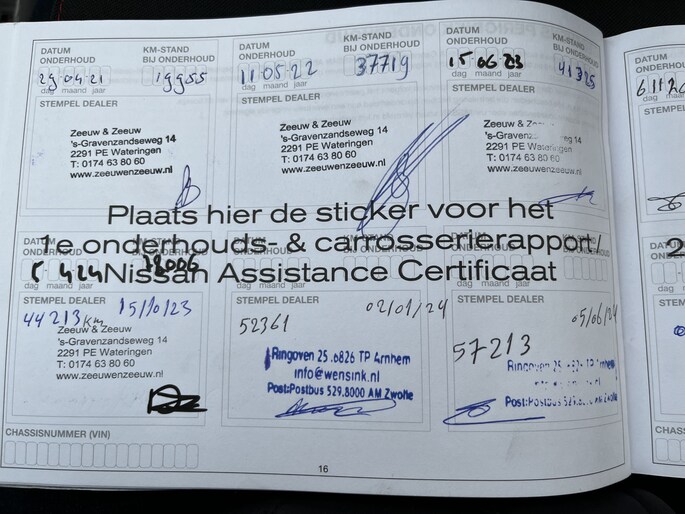 DATUM ONDERHOUD
KM-STAND BIJ ONDERHOUD
29-04-21
19955
dag maand jaar
STEMPEL DEALER
Zeeuw & Zeeuw
's-Gravenzandseweg 14
2291 PE Wateringen
T: 0174 63 80 60
www.zeeuwenzeeuw.nl
DATUM ONDERHOUD
KM-STAND BIJ ONDERHOUD
11 05 22
37719
dag maand jaar
STEMPEL DEALER
Zeeuw & Zeeuw
's-Gravenzandseweg 14
2291 PE Wateringen
T: 0174 63 80 60
www.zeeuwenzeeuw.nl
DATUM ONDERHOUD
KM-STAND BIJ ONDERHOUD
15 06 23
41325
dag maand jaar
STEMPEL DEALER
Zeeuw &
's-Graven ng 14
2291 PE Wateringen
T: 0174 63 80 60
www.zeeuwenzeeuw.nl
DATUM
ONDERHOU
dag maa
STEMPEL
Plaats hier de sticker voor het
1e onderhouds- & carrosserierapport /
Nissan Assistance Certificaat
dag maand jaar
STEMPEL DEALER
44213 km
15/10/23
Zeeuw & Zeeuw
's-Gravenzandseweg 14
2291 PE Wateringen
T: 0174 63 80 60
www.zeeuwenzeeuw.nl
dag maand jaar
STEMPEL DEALER
02/01/24
52361
Ringoven 25 .6826 TP Arnhem
info@wensink.nl
Post:Postbus 529.8000 AM Zwolle
dag maand jaar
STEMPEL DEALER
05/06/24
57213
Ringoven 25 TP Arnhem
Post:Postbus 529.8000 AM Zwolle
DATUM
dag
STEMPEL
CHASSISNUMMER (VIN)
16